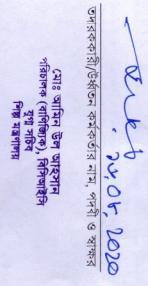 ২৮.০৮.২০২০
তদারককারী/উর্ধ্বতন কর্মকর্তার নাম, পদবী ও স্বাক্ষর
মোঃ আমিন উল আহসান
পরিচালক (বাণিজ্যিক), বিসিআইসি
যুগ্ম সচিব
শিল্প মন্ত্রণালয়